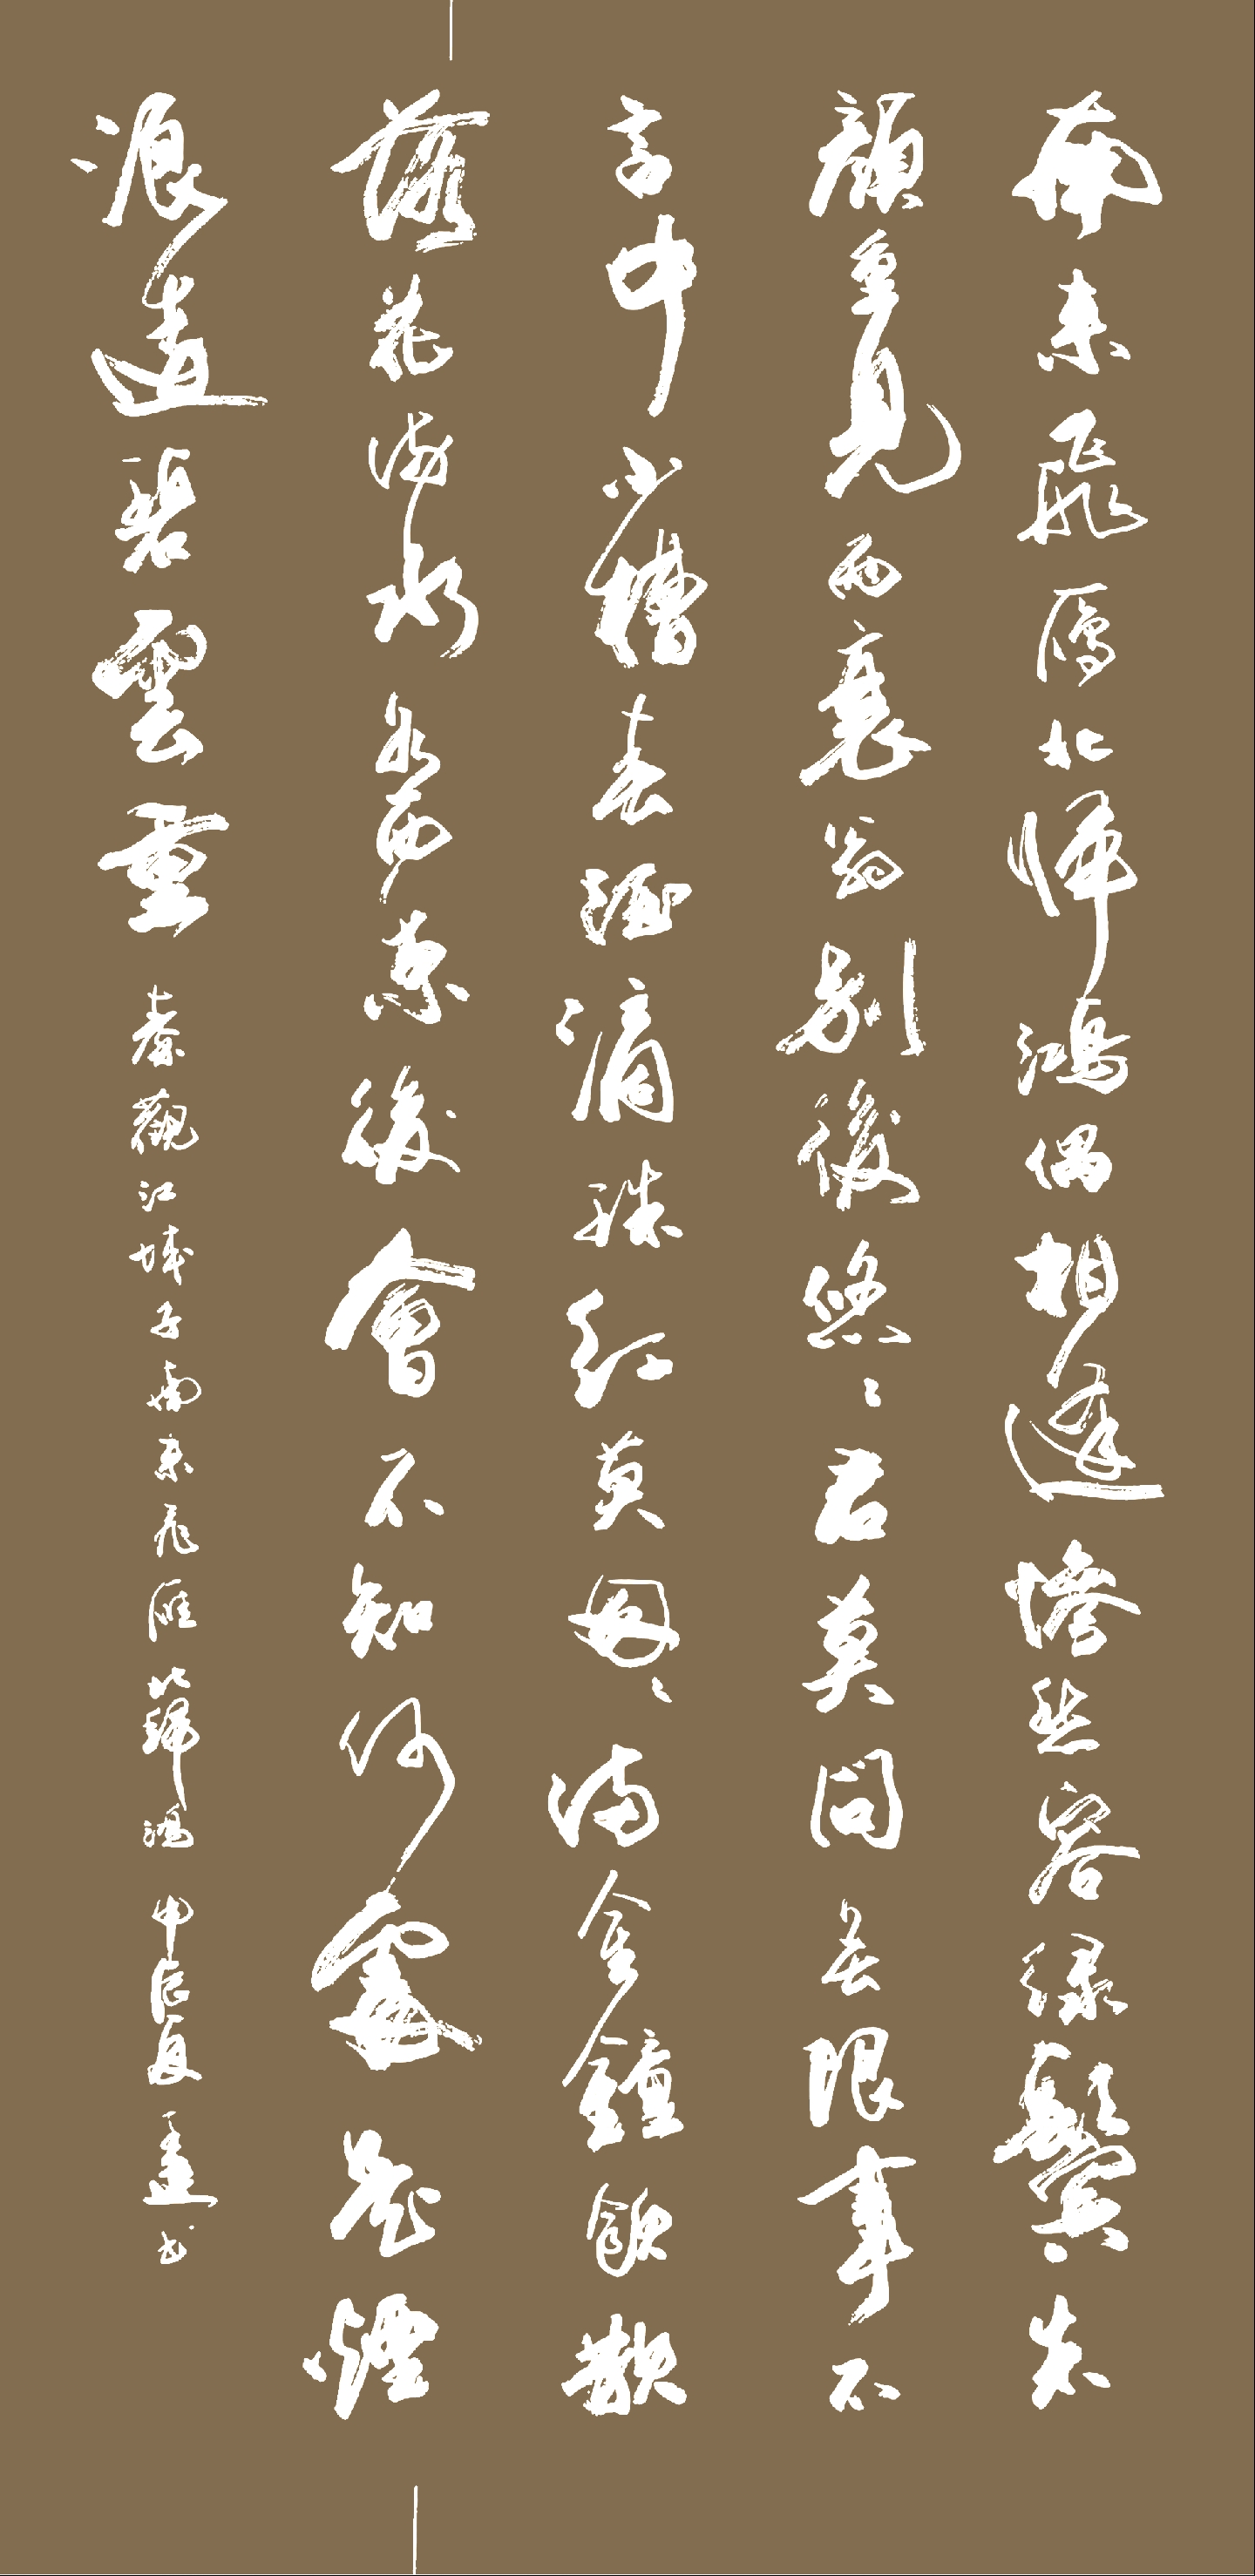 南来飛鴈北歸鴻偶相逢慘愁容緑鬢朱
顏重見兩衰翁别後悠〻君莫問無限事不
言中小槽春酒滴珠紅莫匆〻滿金鐘飲散
落花流水各西東後會不知何處是煙
浪遠碧雲重 秦觀江城子南来飛雁北歸鴻 甲辰夏 书